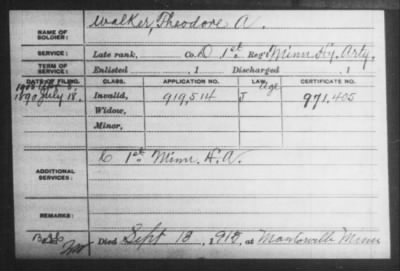 NAME OF SOLDIER: Walker, Theodore A.
SERVICE: Late rank, Co. D 1st Reg't Minn Hy. Arty,
TERM OF SERVICE: Enlisted , 1 Discharged , 1
DATE OF FILING. CLASS. APPLICATION NO. LAW. CERTIFICATE NO.
Age
1890 July 18. Invalid, 919,514 J 971,405
Widow,
Minor,
ADDITIONAL SERVICES: 1st Minn. H.A.
REMARKS:
Died Sept 13, 191 , at Mantorville Minn